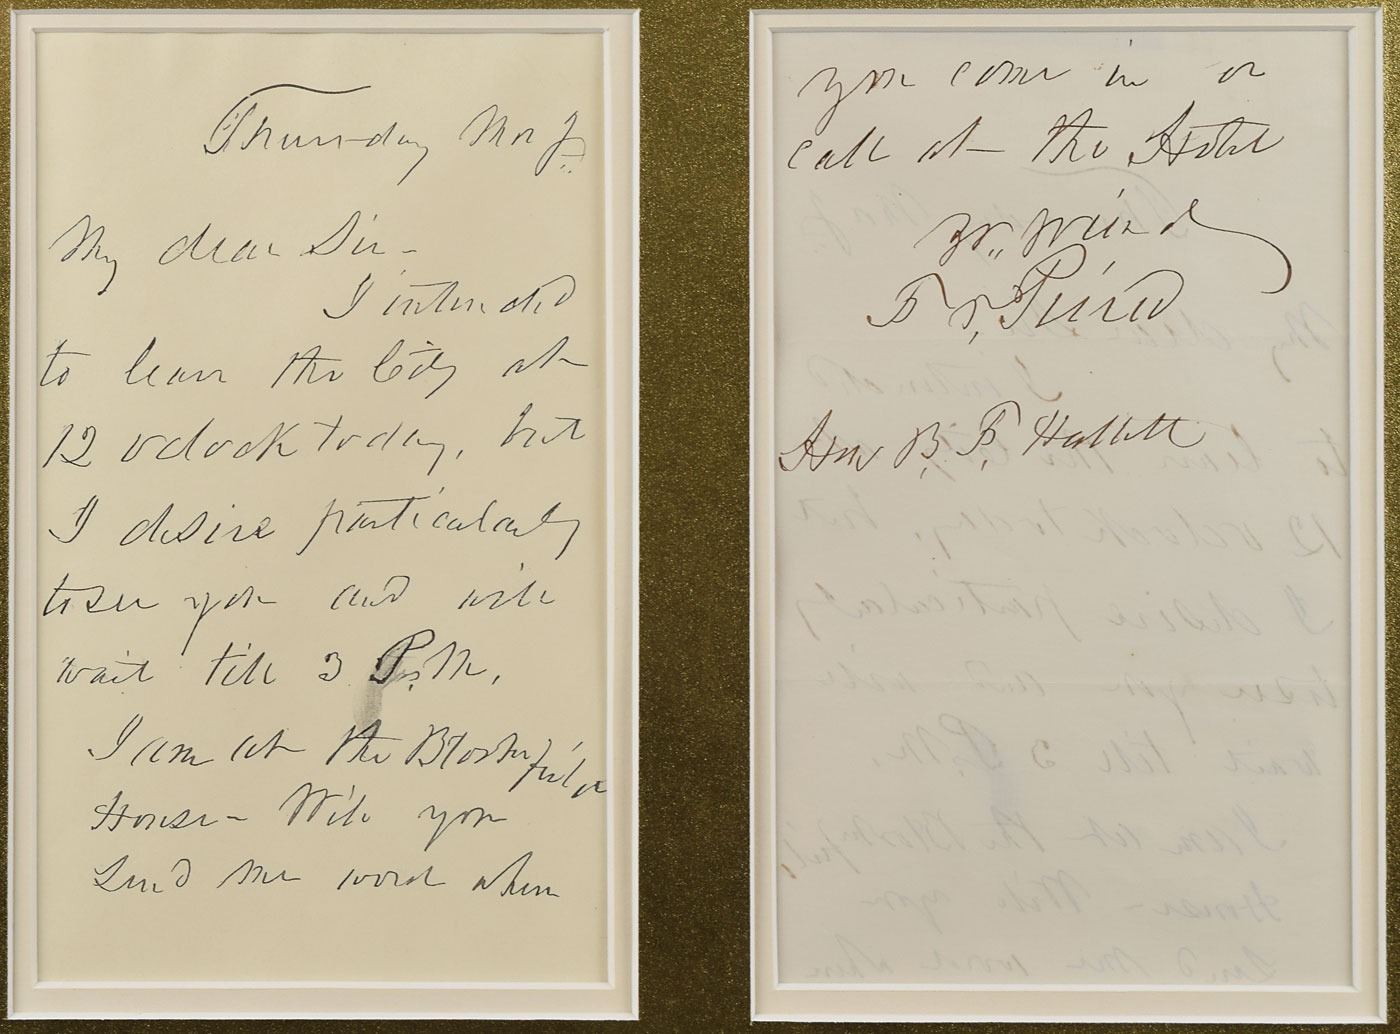 Thursday Mor g.
My dear Sir -
I intended
to leave the City at
12 oclock today, but
I desire particularly
to see you and will
wait till 3 P.M.
I am at the
House - Will you
send me word when
you come in or
call at the Hotel
Yr. friend
Fr. Pierce
Hon B. F. Hallett